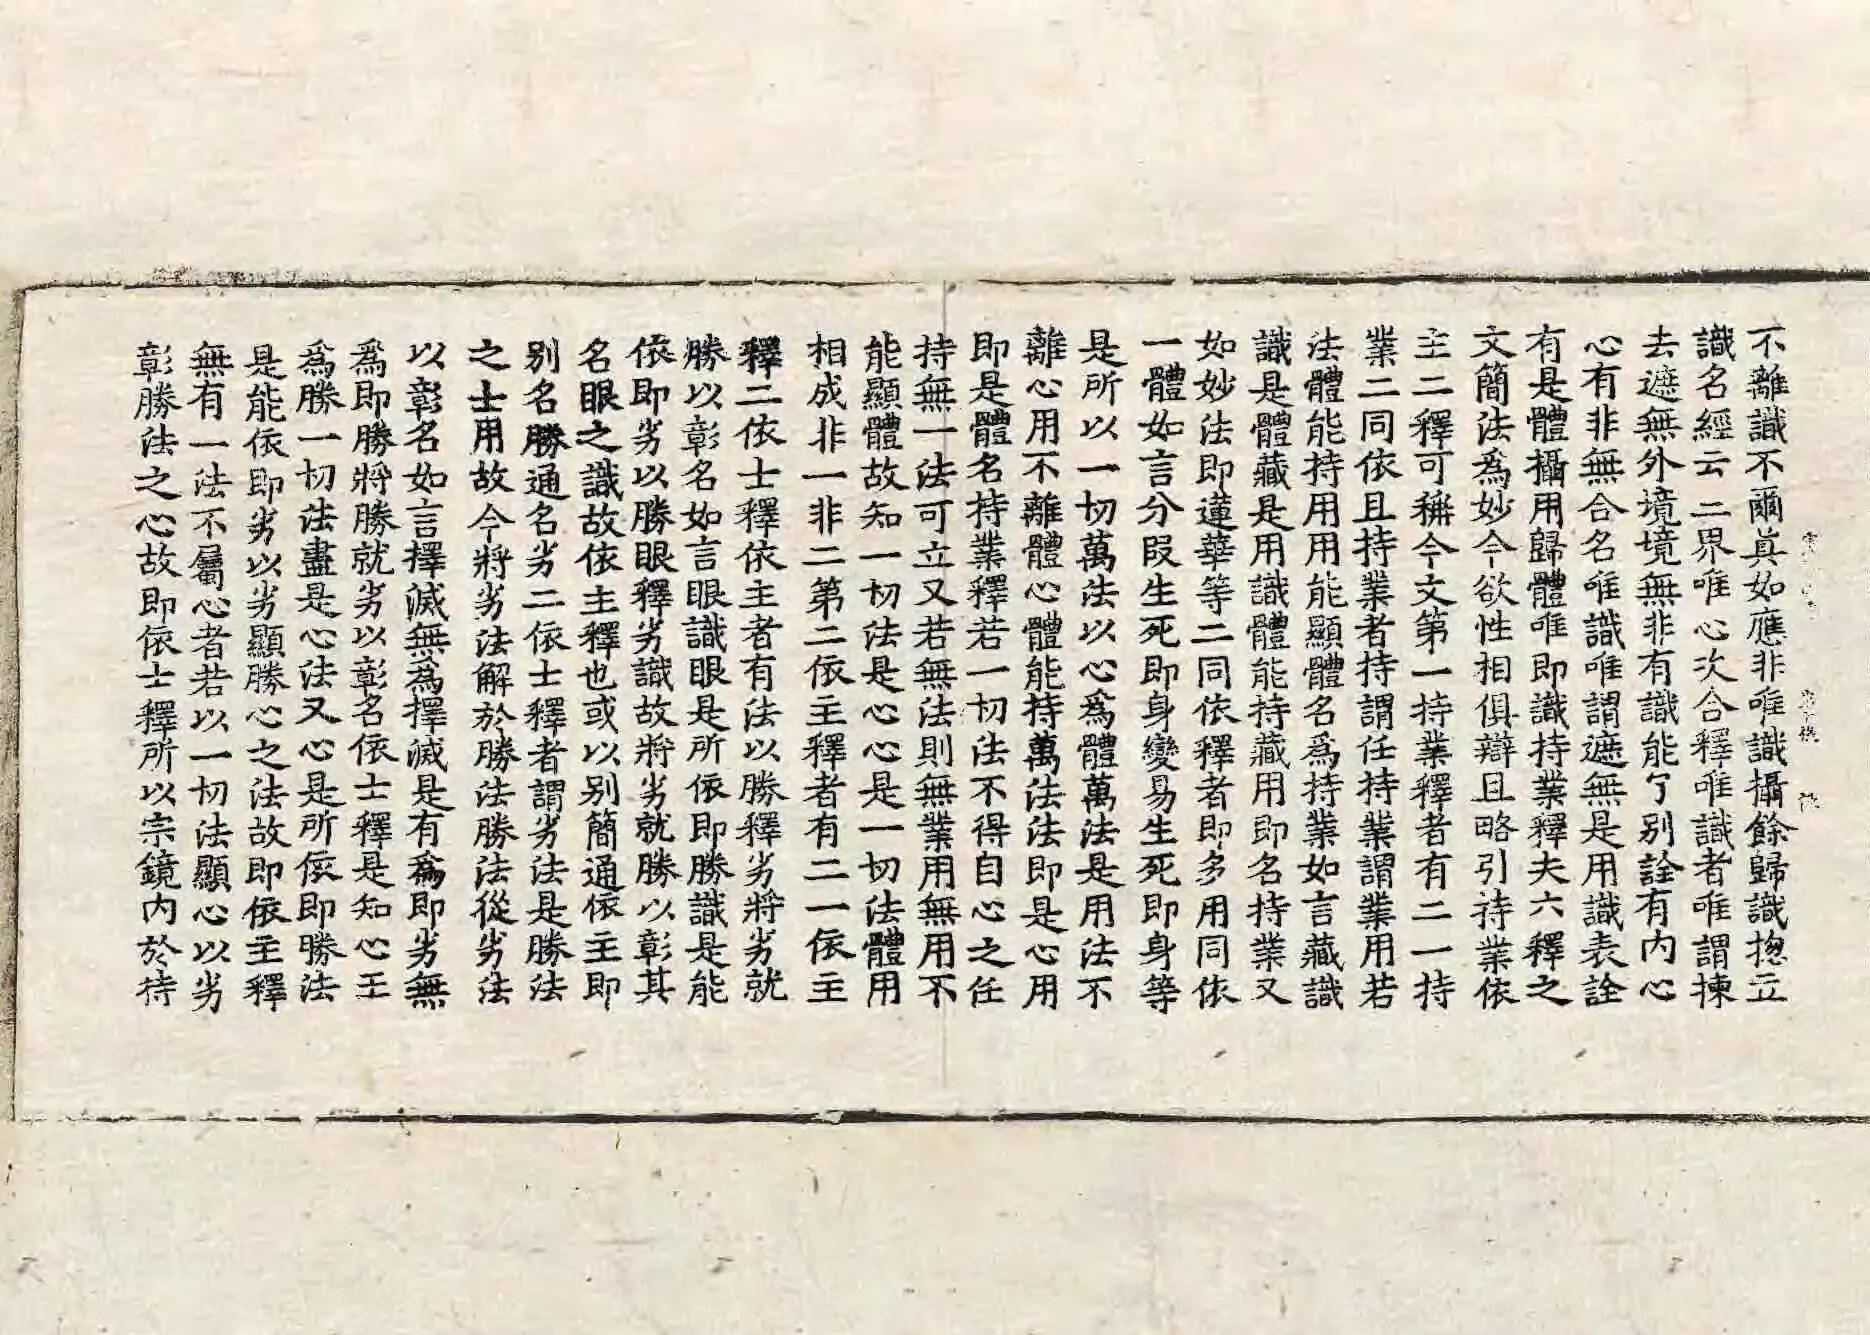 不離識不爾真如應非唯識攝餘歸識揔立
識名經云三界唯心次合釋唯識者唯謂揀
去遮無外境境無非有識能了別詮有內心
心有非無合名唯識唯謂遮無是用識表詮
有是體攝用歸體唯即識持業釋夫六釋之
文簡法爲妙今欲性相俱辯且略引持業依
主二釋可稱今文第一持業釋者有二一持
業二同依且持業者持謂任持業謂業用若
法體能持用用能顯體名爲持業如言藏識
識是體藏是用識體能持藏用即名持業又
如妙法即蓮華等二同依釋者即多用同依
一體如言分叚生死即身變易生死即身等
是所以一切萬法以心爲體萬法是用法不
離心用不離體心體能持萬法法即是心用
即是體名持業釋若一切法不得自心之任
持無一法可立又若無法則無業用無用不
能顯體故知一切法是心心是一切法體用
相成非一非二第二依主釋者有二一依主
釋二依士釋依主者有法以勝釋劣將劣就
勝以彰名如言眼識眼是所依即勝識是能
依即劣以勝眼釋劣識故將劣就勝以彰其
名眼之識故依主釋也或以別簡通依主即
別名勝通名劣二依士釋者謂劣法是勝法
之士用故今將劣法解於勝法勝法從劣法
以彰名如言擇滅無爲擇滅是有爲即劣無
爲即勝將勝就劣以彰名依士釋是知心王
爲勝一切法盡是心法又心是所依即勝法
是能依即劣以劣顯勝心之法故即依主釋
無有一法不屬心者若以一切法顯心以劣
彰勝法之心故即依士釋所以宗鏡內於持